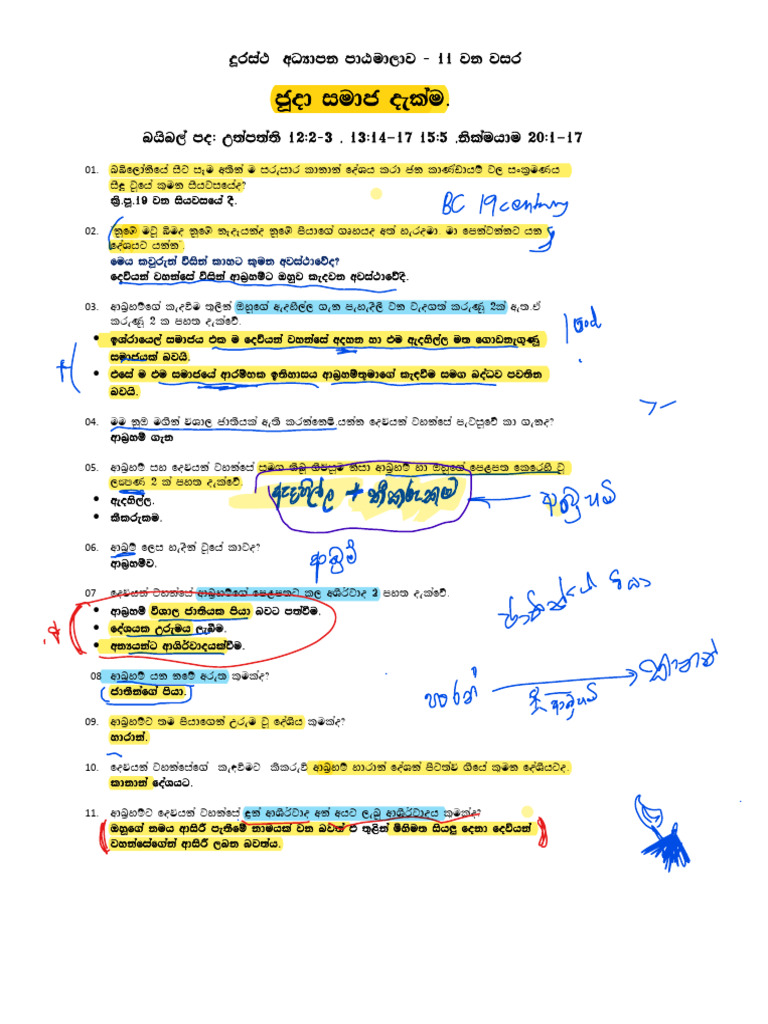 දුරස්ථ අධ්‍යාපන පාඨමාලාව - 11 වන වසර
ජුදා සමාජ දැක්ම.
බයිබල් පද: උත්පත්ති 12:2-3 , 13:14-17 15:5 ,නික්මයාම 20:1-17
01. බබිලෝනියේ සිට සෑම අතින් ම සරුසාර කානාන් දේශය කරා ජන කාණ්ඩායම් වල සංක්‍රමණය
සිදු වූයේ කුමන සියවසයේද?
ක්‍රි.පූ.19 වන සියවසයේ දී.
BC 19 century
02. 'නුඹේ මව් බිමද නුඹේ නෑදෑයන්ද නුඹේ පියාගේ ගෘහයද අත් හැරදමා මා පෙන්වන්නට යන
දේශයට යන්න'.
මෙය කවුරුන් විසින් කාහට කුමන අවස්ථාවේද?
දෙවියන් වහන්සේ විසින් ආබ්‍රහම්ට ඔහුව කැදවන අවස්ථාවේදි.
03. ආබ්‍රහම්ගේ කැදවීම තුලින් ඔහුගේ ඇදහිල්ල ගැන පැහැදිලි වන වැදගත් කරුණු 2ක් ඇත.ඒ
කරුණු 2 ක පහත දැක්වේ.
1 God
• ඉශ්රායෙල් සමාජය එක ම දෙවියන් වහන්සේ අදහන හා එම ඇදහිල්ල මත ගොඩනැගුණු
සමාජයක් බවයි.
• එසේ ම එම සමාජයේ ආරම්භක ඉතිහාසය ආබ්‍රහම්තුමාගේ කැදවීම සමග බද්ධව පවතින
බවයි.
04. මම නුඹ මගින් විශාල ජාතියක් ඇති කරන්නෙමි.යන්න දෙවියන් වහන්සේ පැවසුවේ කා ගැනද?
ආබ්‍රහම් ගැන
05. ආබ්‍රහම් සහ දෙවියන් වහන්සේ සමග තිබූ ගිවිසුම නිසා ආබ්‍රහම් හා ඔහුගේ පෙළපත කෙරෙහි වූ
ලක්‍ෂණ 2 ක් පහත දැක්වේ.
ඇදහිල්ල + කීකරුකම
ආබ්‍රහම්
• ඇදහිල්ල.
• කීකරුකම.
06. ආබ්‍රම් ලෙස හැදින් වූයේ කාවද?
ආබ්‍රහම්ව.
ආබ්‍රම්
07 දෙවියන් වහන්සේ ආබ්‍රහම්ගේ පෙළපතට කල ආශිර්වාද 3 පහත දැක්වේ.
• ආබ්‍රහම් විශාල ජාතියක පියා බවට පත්වීම.
ජාතීන්ගේ පියා
• දේශයක උරුමය ලැබීම.
• අන්‍යයන්ට ආශිර්වාදයක්වීම.
08 ආබ්‍රහම් යන නමේ අරුත කුමක්ද?
ජාතීන්ගේ පියා.
හාරාන් කානාන්
ආබ්‍රහම්
09. ආබ්‍රහම්ට තම පියාගෙන් උරුම වූ දේශිය කුමක්ද?
හාරාන්.
10. දෙවියන් වහන්සේගේ කැඳවීමට කීකරුවී ආබ්‍රහම් හාරාන් දේශන් පිටත්ව ගියේ කුමන දේශියටද.
කානාන් දේශයට.
11. ආබ්‍රහම්ට දෙවියන් වහන්සේ දුන් ආශිර්වාද අන් අයට ලැබූ ආශිර්වාදය කුමක්ද?
ඔහුගේ නමය ආසිරි පැතීමේ නාමයක් වන බවත් ඒ තුළින් මිහිමත සියළු දෙනා දෙවියන්
වහන්සේගේන් ආසිරි ලබන බවත්ය.